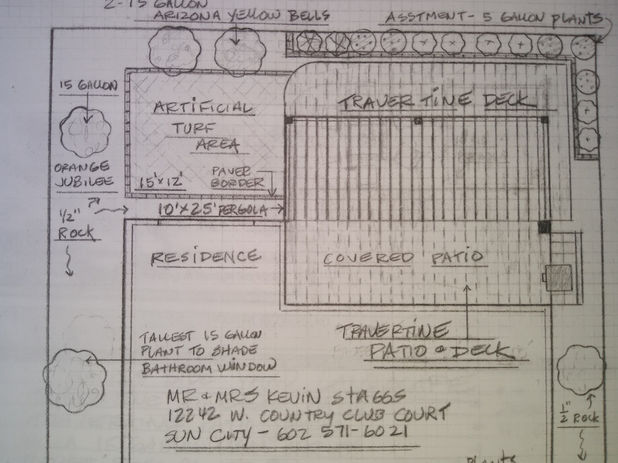 2-15 GALLON
ARIZONA YELLOW BELLS
ASSTMENT- 5 GALLON PLANTS
15 GALLON
ARTIFICIAL
TURF
AREA
TRAVERTINE DECK
ORANGE
JUBILEE
15'x12'
PAVER
BORDER
7'
10'x25' PERGOLA
1/2"
ROCK
RESIDENCE
COVERED PATIO
TALLEST 15 GALLON
PLANT TO SHADE
BATHROOM WINDOW
TRAVERTINE
PATIO & DECK
MR & MRS KEVIN STAGGS
12242 W. COUNTRY CLUB COURT
SUN CITY - 602 571-6021
1/2" ROCK
Plants